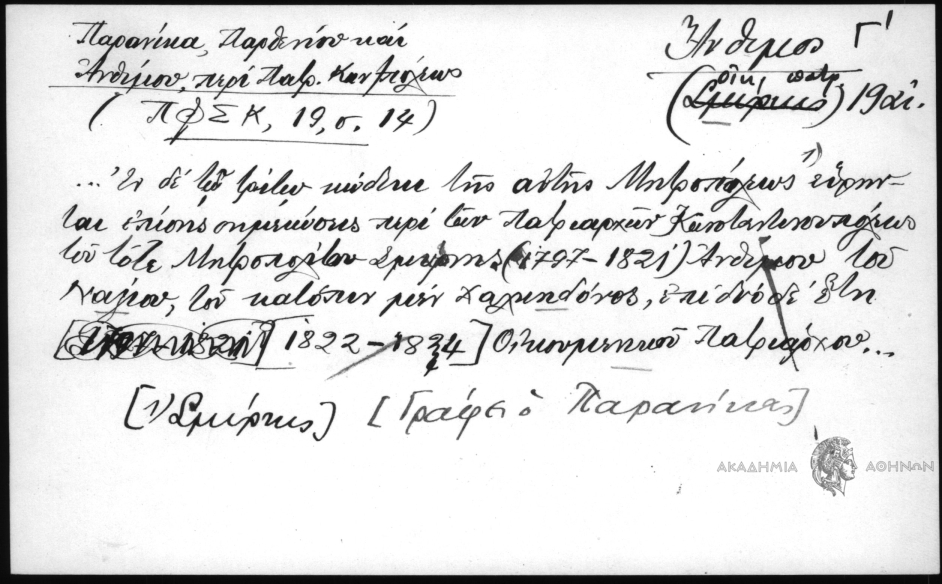 Παρανίκα, Παρθενίου καὶ
Ἀνθίμου, περὶ Πατρ. Κων/πόλεως
(ΠΦΣΚ, 19, σ. 14)
Ἄνθιμος Γ'
οἰκ. πατρ.
(Σμύρνης) 1921.
... Ἐν δὲ τῷ τρίτῳ κώδικι τῆς αὐτῆς Μητροπόλεως 1) εὕρην-
ται ἐπίσης σημειώσεις περὶ τῶν Πατριαρχῶν Κωνσταντινουπόλεως
τοῦ τότε Μητροπολίτου Σμύρνης (1797-1821) Ἀνθίμου τοῦ
Ναξίου, τοῦ κατόπιν μὲν Χαλκηδόνος, ἐπὶ δύο δὲ ἔτη
[1822-1824] Οἰκουμενικοῦ Πατριάρχου...
[1) Σμύρνης] [Γράφει ὁ Παρανίκας]
ΑΚΑΔΗΜΙΑ ΑΘΗΝΩΝ